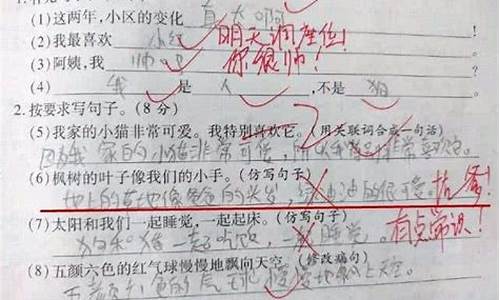 (1)这两年,小区的变化 真大啊
(2)我最喜欢 小红 明天调座位!
(3)阿姨,我 帅吧 你很帅!
(4) 我 是 人 ,不是 狗
2.按要求写句子。(8 分)
(5)我家的小猫非常可爱。我特别喜欢它。(用关联词合成一句话)
因为我家的小猫非常可爱,所以我特别非常喜欢它。
(6)枫树的叶子像我们的小手。(仿写句子)
地上的草地像爸爸的头发,绿油油的很可爱。 抗爹!
(7)太阳和我们一起睡觉,一起起床。(仿写句子)
狗和猪一起吃饭,一起睡觉。 有点常识!
(8)五颜六色的红气球慢慢地飘向天空。(修改病句)
五颜六色的气球慢慢地飘上天空。